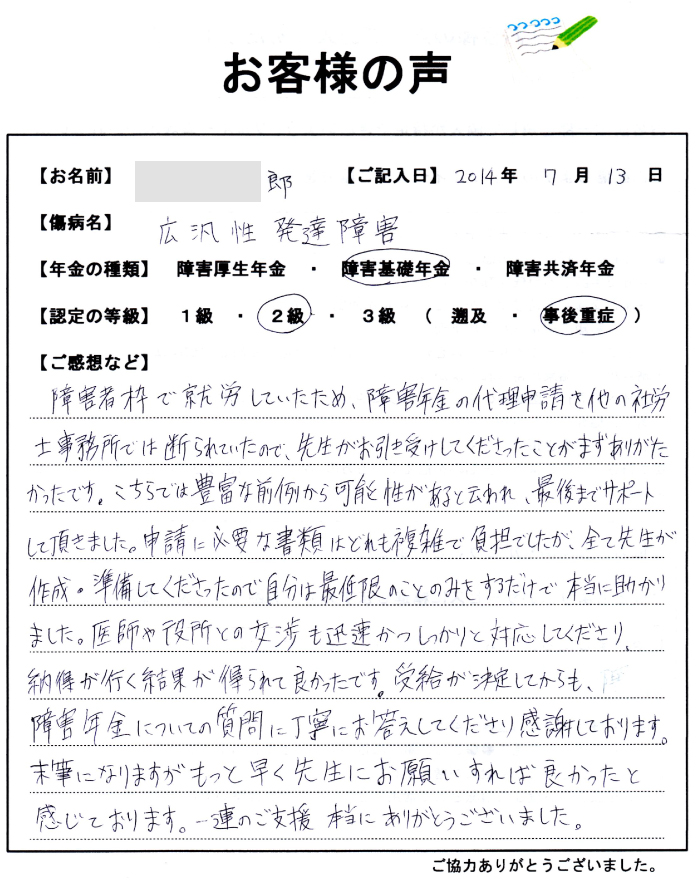 お客様の声
【お名前】 郎 【ご記入日】 2014年 7月 13日
【傷病名】 広汎性発達障害
【年金の種類】 障害厚生年金 ・ 障害基礎年金 ・ 障害共済年金
【認定の等級】 1級 ・ 2級 ・ 3級 ( 遡及 ・ 事後重症 )
【ご感想など】
障害者枠で就労していたため、障害年金の代理申請を他の社労
士事務所では断られていたので、先生がお引き受けしてくださったことがまずありがた
かったです。こちらでは豊富な前例から可能性があると云われ、最後までサポート
して頂きました。申請に必要な書類はどれも複雑で負担でしたが、全て先生が
作成・準備してくださったので自分は最低限のことのみをするだけで本当に助かり
ました。医師や役所との交渉も迅速かつしっかりと対応してくださり、
納得が行く結果が得られて良かったです。受給が決定してからも、
障害年金についての質問に丁寧にお答えしてくださり感謝しております。
末筆になりますがもっと早く先生にお願いすれば良かったと
感じております。一連のご支援本当にありがとうございました。
ご協力ありがとうございました。